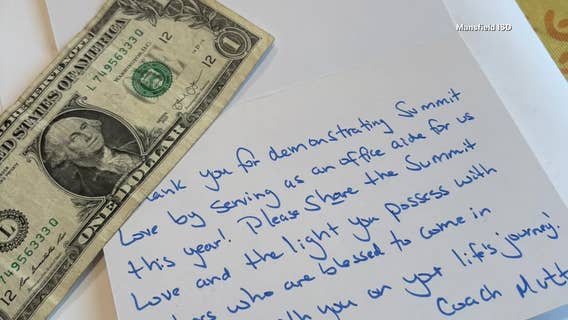 Mansfield ISD
UNITED STATES OF AMERICA
L 74956333 O
WASHINGTON, D.C.
12
1
L
74956333 O
12
ONE DOLLAR
ank you for demonstrating Summit
Love by serving as an office aide for us
this year! Please Share the Summit
Love and the light you possess with
ers who are blessed to come in
you on your life's journey!
Coach Mutt